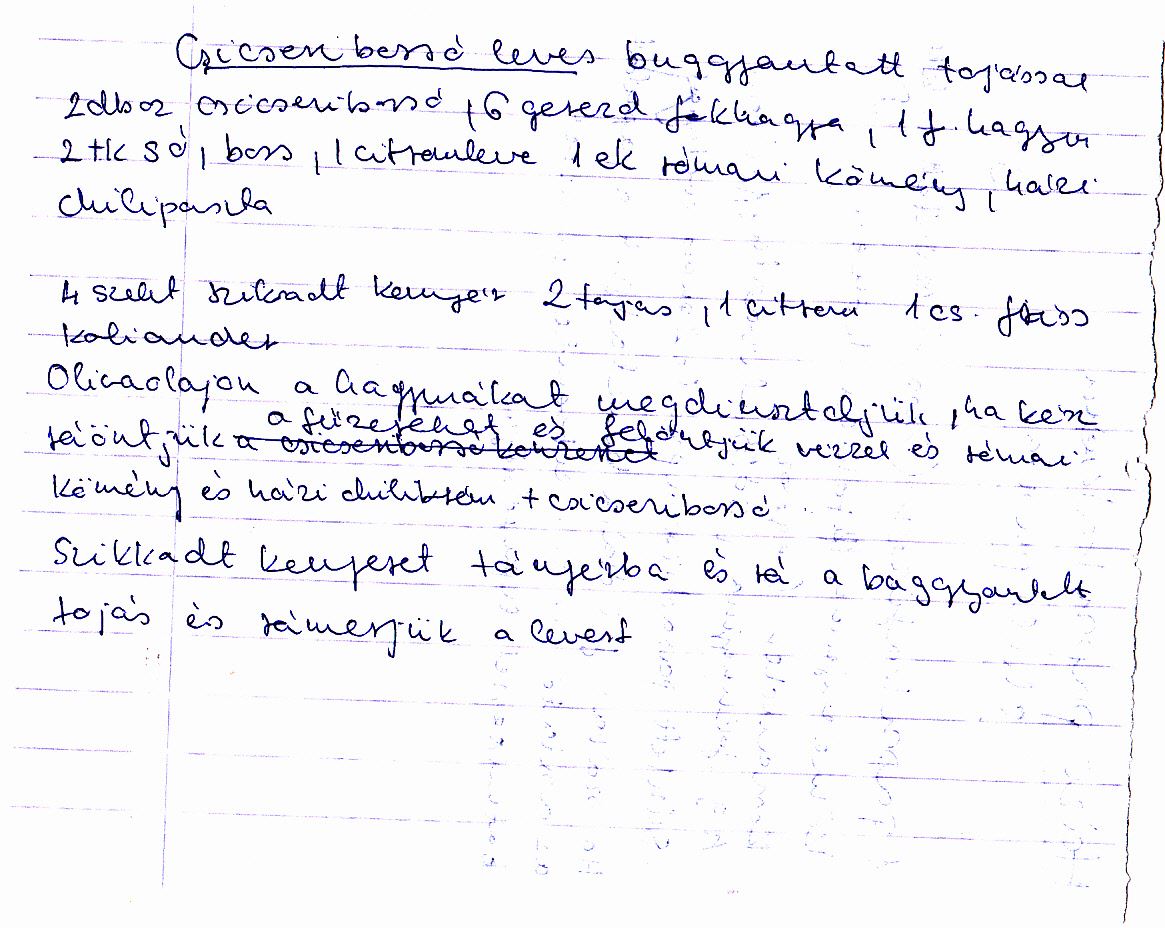 Csicseri borsó leves buggyantatt tojással
2 doboz csicseriborsó, 6 gerezd fokhagyma, 1 f. hagyma
2 tk só, bors, 1 citromleve 1 ek római kömény, házi
chilipaszta
4 szelet szikradt kenyér 2 tojás, 1 citrom 1 cs. friss
koliander
Olivaolajon a hagymákat megdinszteljük, ha kész
a fűszereket és
ráöntjük a csicseriborsó felöntjük vízzel és római
kömény és házi chilikrém + csicseriborsó
Szikkadt kenyeret tányérba és rá a buggyantott
tojás és rámerjük a levest